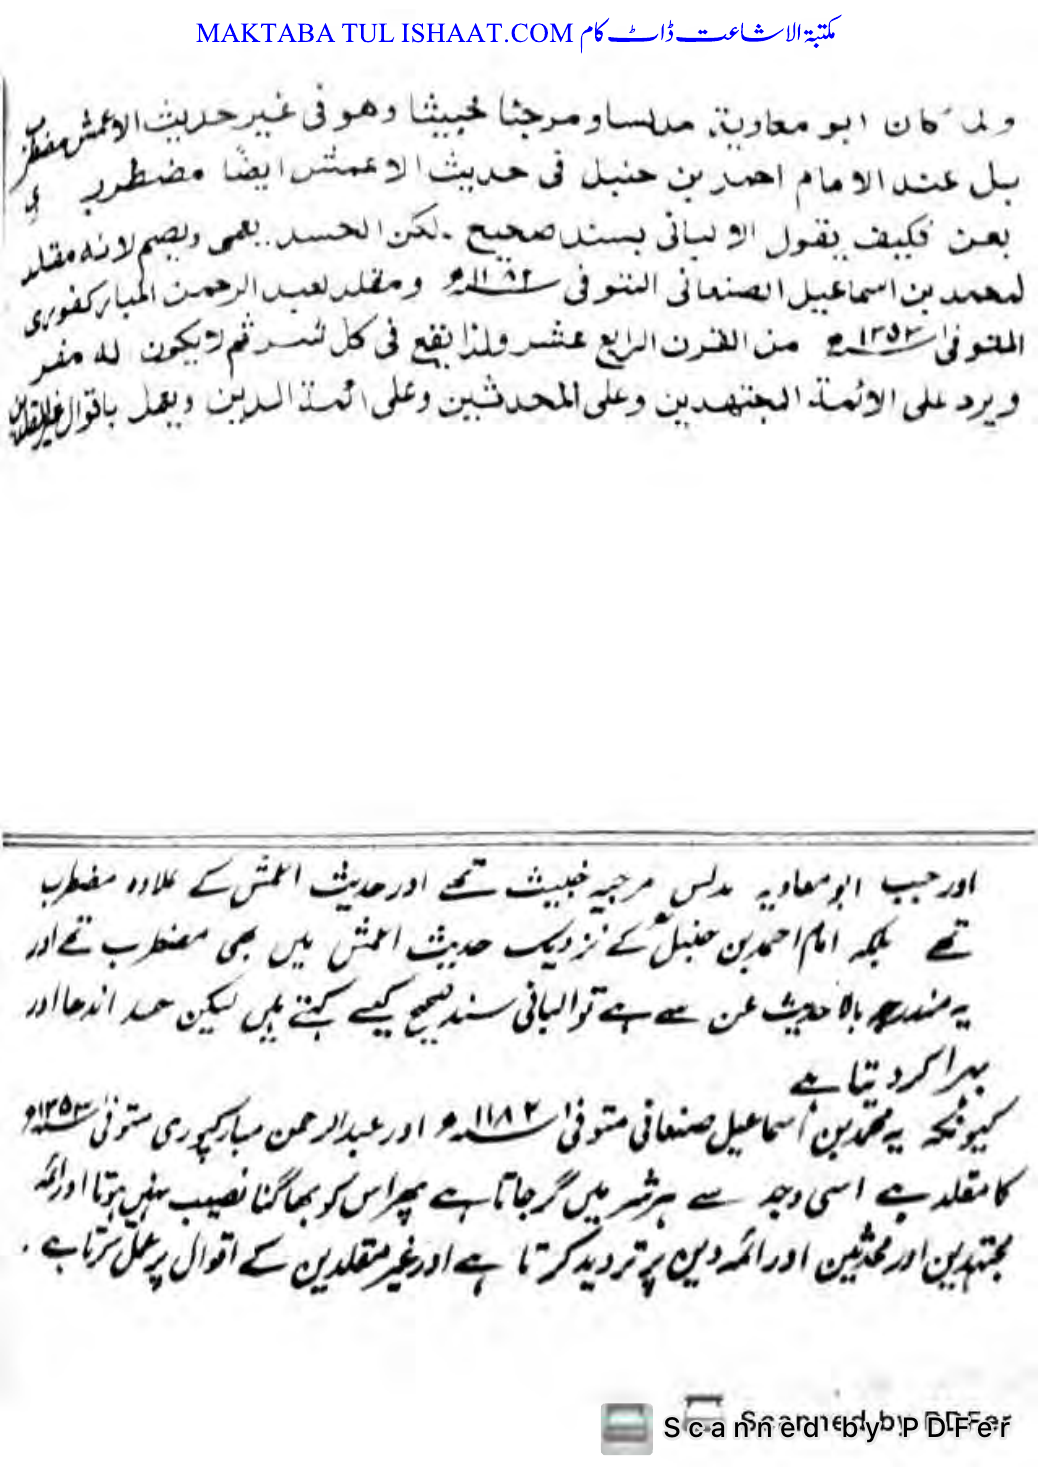 MAKTABA TUL ISHAAT.COM مکتبۃ الاشاعت ڈاٹ کام
ولما كان ابو معاوية، مدلسا ومرجئا خبيثا وهو فى غير حديث الاعمش مضطرب
بل عند الامام احمد بن حنبل فى حديث الاعمش ايضا مضطرب
بعن فكيف يقول الالبانى بسند صحيح ـ لكن الحسد يعمى ويصم لانه مقلد
لمحمد بن اسماعيل الصنعانى المتوفى ١١٨٢ھ ومقلد لعبد الرحمن المباركفورى
المتوفى ١٣٥٣ھ من القرن الرابع عشر ولذا يقع فى كل شر ثم لا يكون له مفر
ويرد على الائمة المجتهدين وعلى المحدثين وعلى ائمة الدين ويعمل باقوال غير المقلدين
اور جب ابو معاویہ مدلس مرجیہ خبیث تھے اور حدیث اعمش کے علاوہ مضطرب
تھے بلکہ امام احمد بن حنبلؒ کے نزدیک حدیث اعمش میں بھی مضطرب تھے اور
یہ مندرجہ بالا حدیث عن سے ہے تو البانی سند صحیح کیسے کہتے ہیں لیکن حسد اندھا اور
بہرا کر دیتا ہے
کیونکہ یہ محمد بن اسماعیل صنعانی متوفی ١١٨٢ھ اور عبدالرحمن مبارکپوری متوفی ١٣٥٣ھ
کا مقلد ہے اسی وجہ سے ہر شر میں گر جاتا ہے پھر اس کو بھاگنا نصیب نہیں ہوتا اور ائمہ
مجتہدین اور محدثین اور ائمہ دین پر تردید کرتا ہے اور غیر مقلدین کے اقوال پر عمل کرتا ہے ۔
Scanned by PDFer